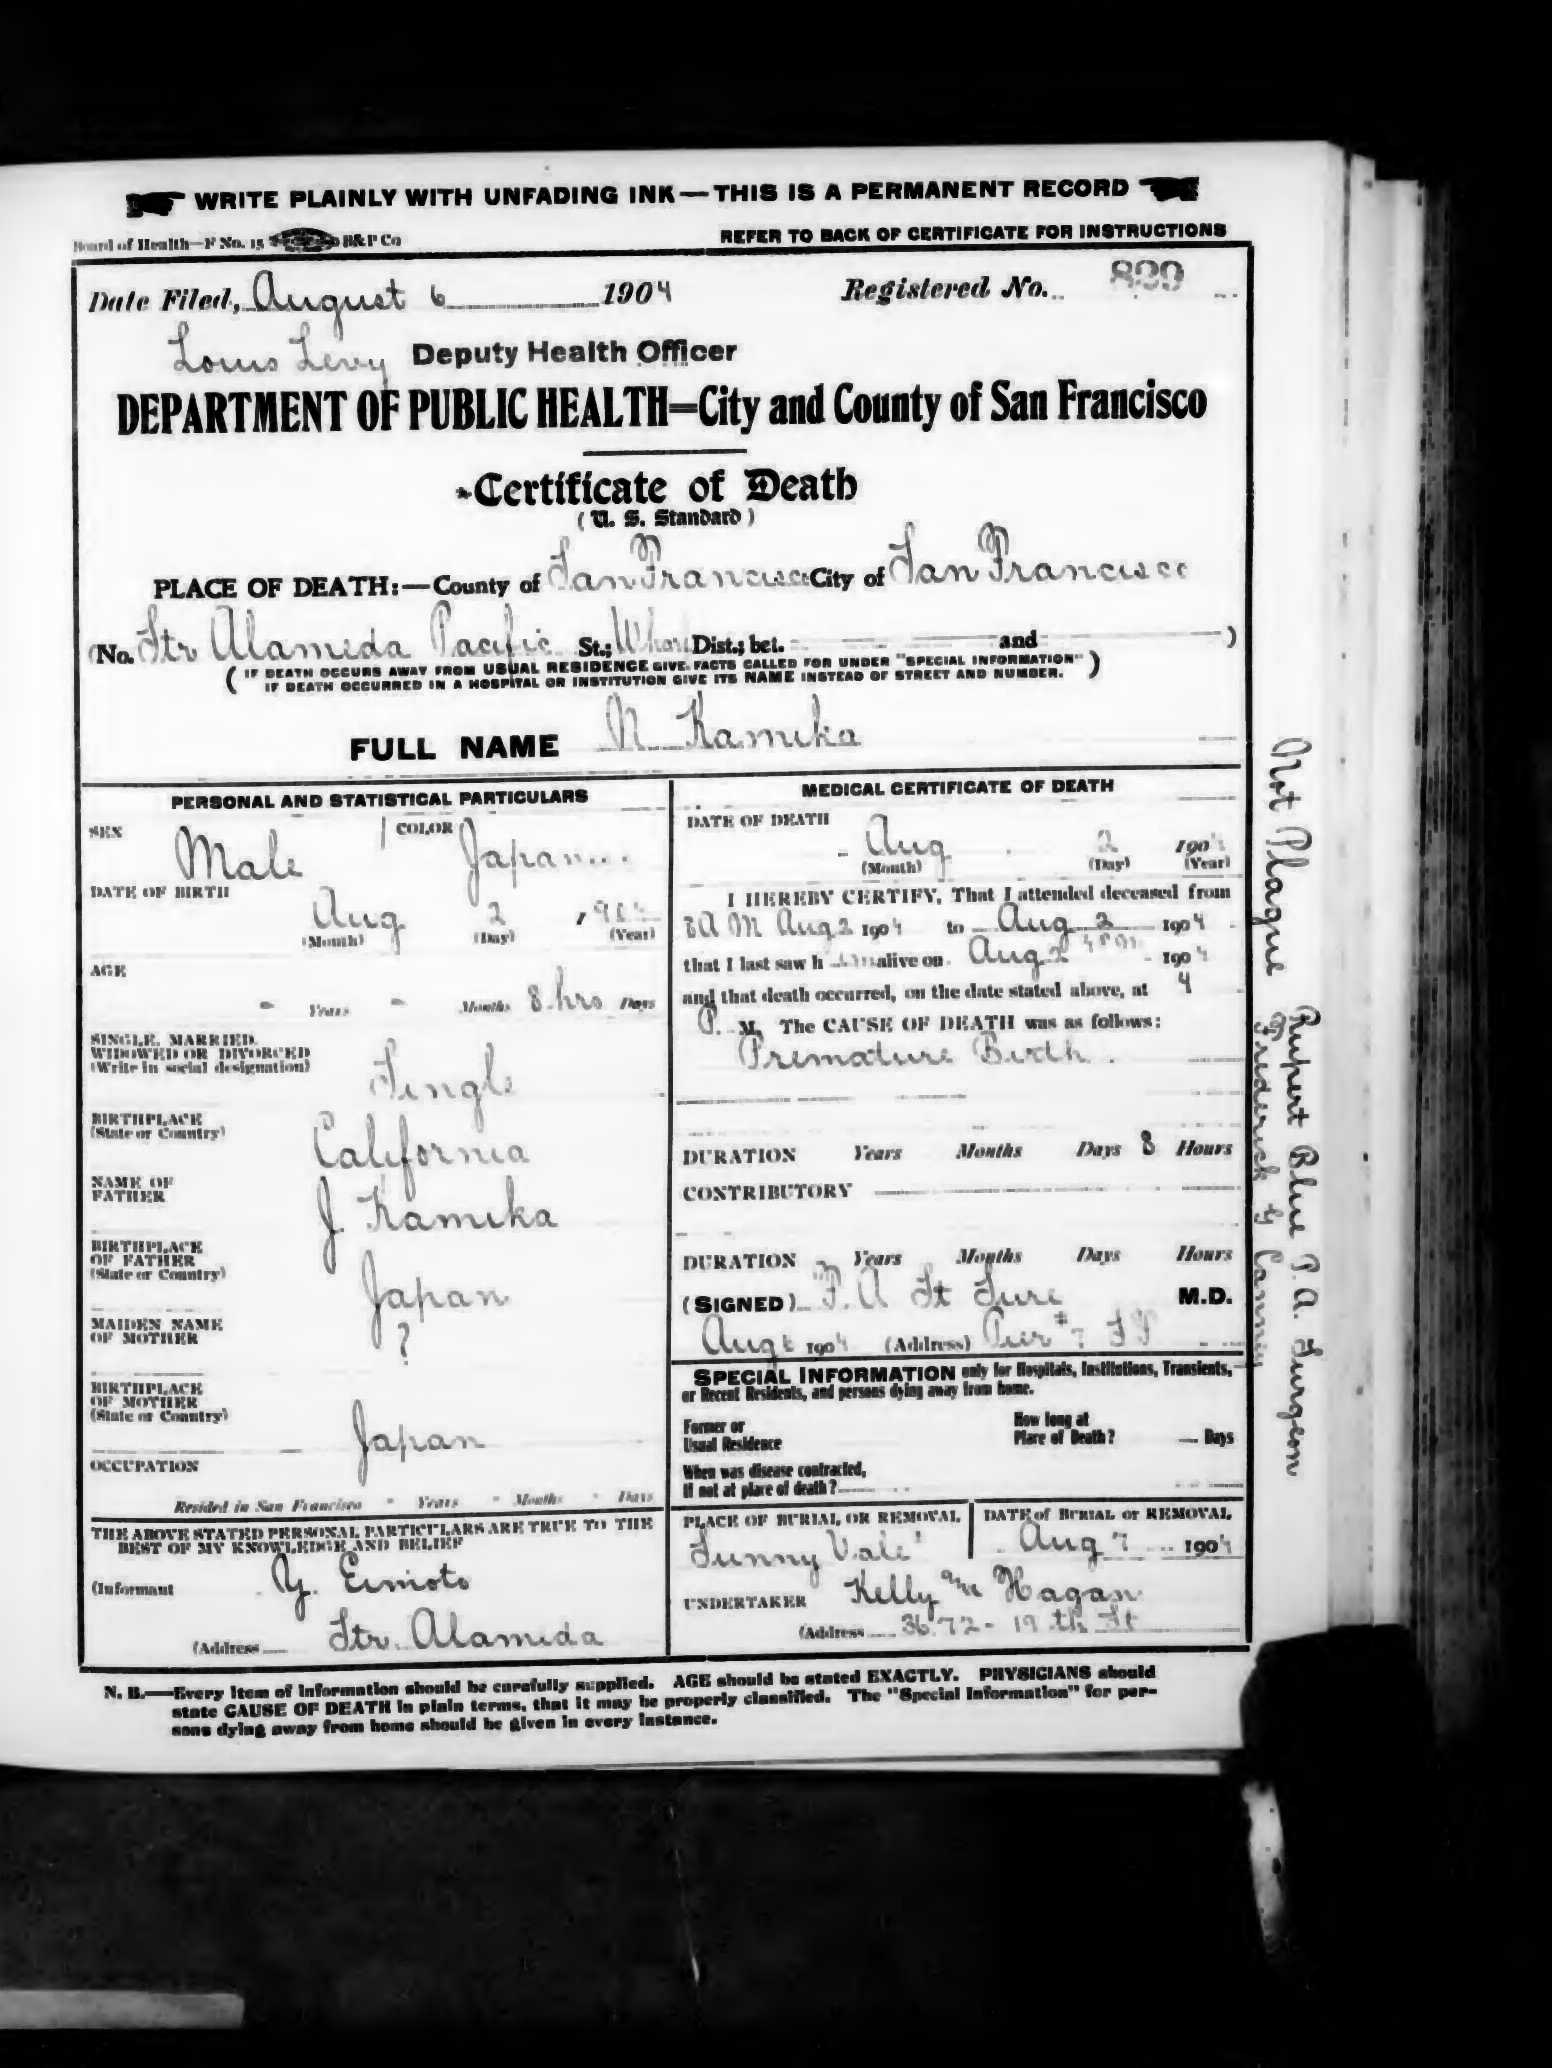 WRITE PLAINLY WITH UNFADING INK—THIS IS A PERMANENT RECORD
Board of Health—F No. 15 B&P Co
REFER TO BACK OF CERTIFICATE FOR INSTRUCTIONS
Date Filed, August 6 1904 Registered No. 899
Louis Levy Deputy Health Officer
DEPARTMENT OF PUBLIC HEALTH=City and County of San Francisco
Certificate of Death
(U. S. Standard)
PLACE OF DEATH:—County of San Francisco City of San Francisco
(No. Str Alameda Pacific St.; Wharf Dist.; bet. and )
( IF DEATH OCCURS AWAY FROM USUAL RESIDENCE GIVE FACTS CALLED FOR UNDER "SPECIAL INFORMATION" )
IF DEATH OCCURRED IN A HOSPITAL OR INSTITUTION GIVE ITS NAME INSTEAD OF STREET AND NUMBER.
FULL NAME N Kamika
PERSONAL AND STATISTICAL PARTICULARS
SEX Male COLOR Japan...
DATE OF BIRTH
Aug 2 , 904
(Month) (Day) (Year)
AGE
- Years - Months 8 hrs Days
SINGLE, MARRIED,
WIDOWED OR DIVORCED
(Write in social designation)
Single
BIRTHPLACE
(State or Country)
California
NAME OF
FATHER
J. Kamika
BIRTHPLACE
OF FATHER
(State or Country)
Japan
MAIDEN NAME
OF MOTHER
?
BIRTHPLACE
OF MOTHER
(State or Country)
Japan
OCCUPATION
Resided in San Francisco - Years - Months - Days
THE ABOVE STATED PERSONAL PARTICULARS ARE TRUE TO THE
BEST OF MY KNOWLEDGE AND BELIEF
(Informant Y. Eimoto
(Address Str. Alameda
MEDICAL CERTIFICATE OF DEATH
DATE OF DEATH
Aug 2 1904
(Month) (Day) (Year)
I HEREBY CERTIFY, That I attended deceased from
8 A M Aug 2 1904 to Aug 2 1904
that I last saw h im alive on Aug 2 4 P M 1904
and that death occurred, on the date stated above, at 4
P. M. The CAUSE OF DEATH was as follows:
Premature Birth
DURATION Years Months Days 8 Hours
CONTRIBUTORY
DURATION Years Months Days Hours
(SIGNED) F. A St Sure M.D.
Aug 6 1904 (Address) Pier #7 SF
SPECIAL INFORMATION only for Hospitals, Institutions, Transients,
or Recent Residents, and persons dying away from home.
Former or
Usual Residence
How long at
Place of Death? Days
When was disease contracted,
If not at place of death?
PLACE OF BURIAL OR REMOVAL
Sunny Vale
DATE of BURIAL or REMOVAL
Aug 7 1904
UNDERTAKER Kelly and Hagan
(Address 3672 - 19 th St
N. B.—Every item of information should be carefully supplied. AGE should be stated EXACTLY. PHYSICIANS should
state CAUSE OF DEATH in plain terms, that it may be properly classified. The "Special Information" for per-
sons dying away from home should be given in every instance.
Not Plague Rupert Blue P.A. Surgeon
Frederick G Canney